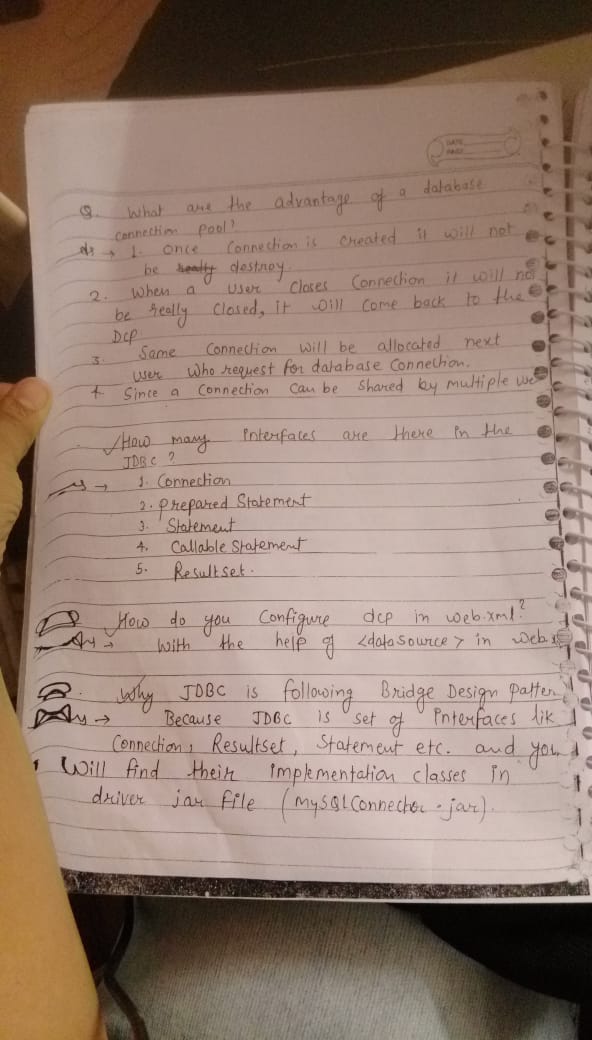 DATE
PAGE
Q. What are the advantage of a database
connection pool?
Ans → 1. Once Connection is Created it will not
be really destroy.
2. When a User Closes Connection it will not
be really Closed, it will Come back to the
Dcp.
3. Same Connection will be allocated next
user who request for database Connection.
4. Since a Connection Can be shared by multiple
How many Interfaces are there in the
JDBC ?
→ 1. Connection
2. prepared Statement
3. Statement
4. Callable Statement
5. Resultset.
How do you Configure dcp in web.xml?
→ With the help of <dataSource> in web.
Why JDBC is following Bridge Design patter
→ Because JDBC is set of Interfaces lik
Connection, Resultset, Statement etc. and you
Will find their implementation classes in
driver jar file (MySQLConnector-jar).